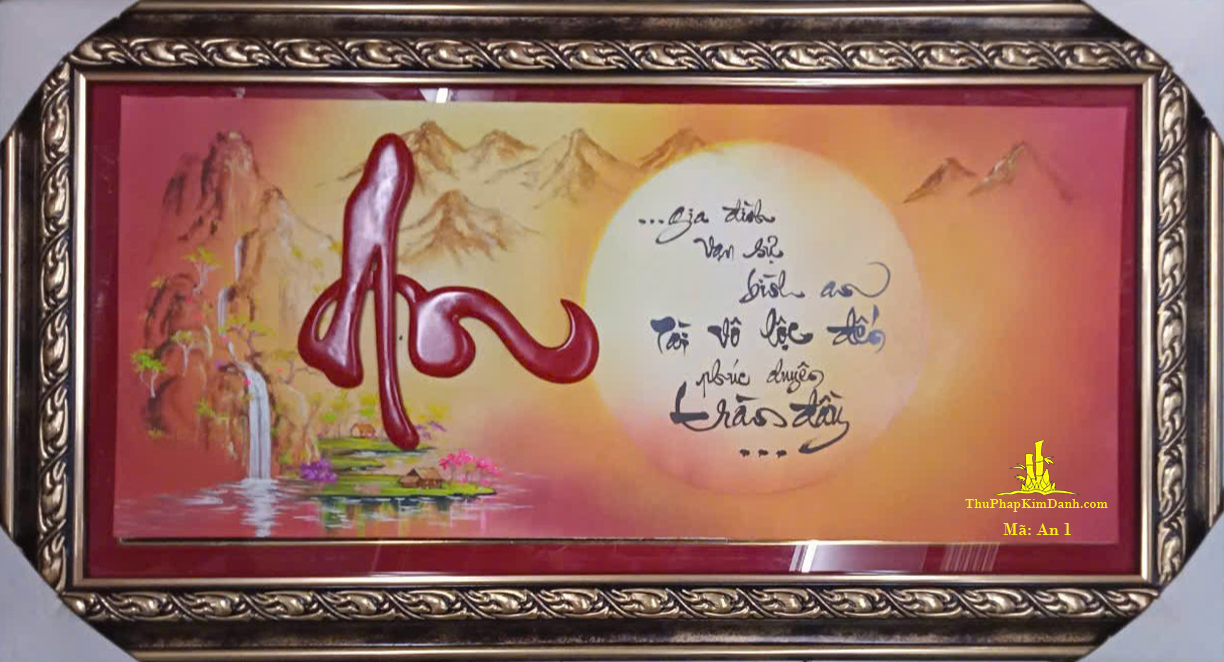 An
...gia đình
vạn sự
bình an
Tài vô lộc đến
phúc duyên
tràn đầy
...
ThuPhapKimDanh.com
Mã: An 1